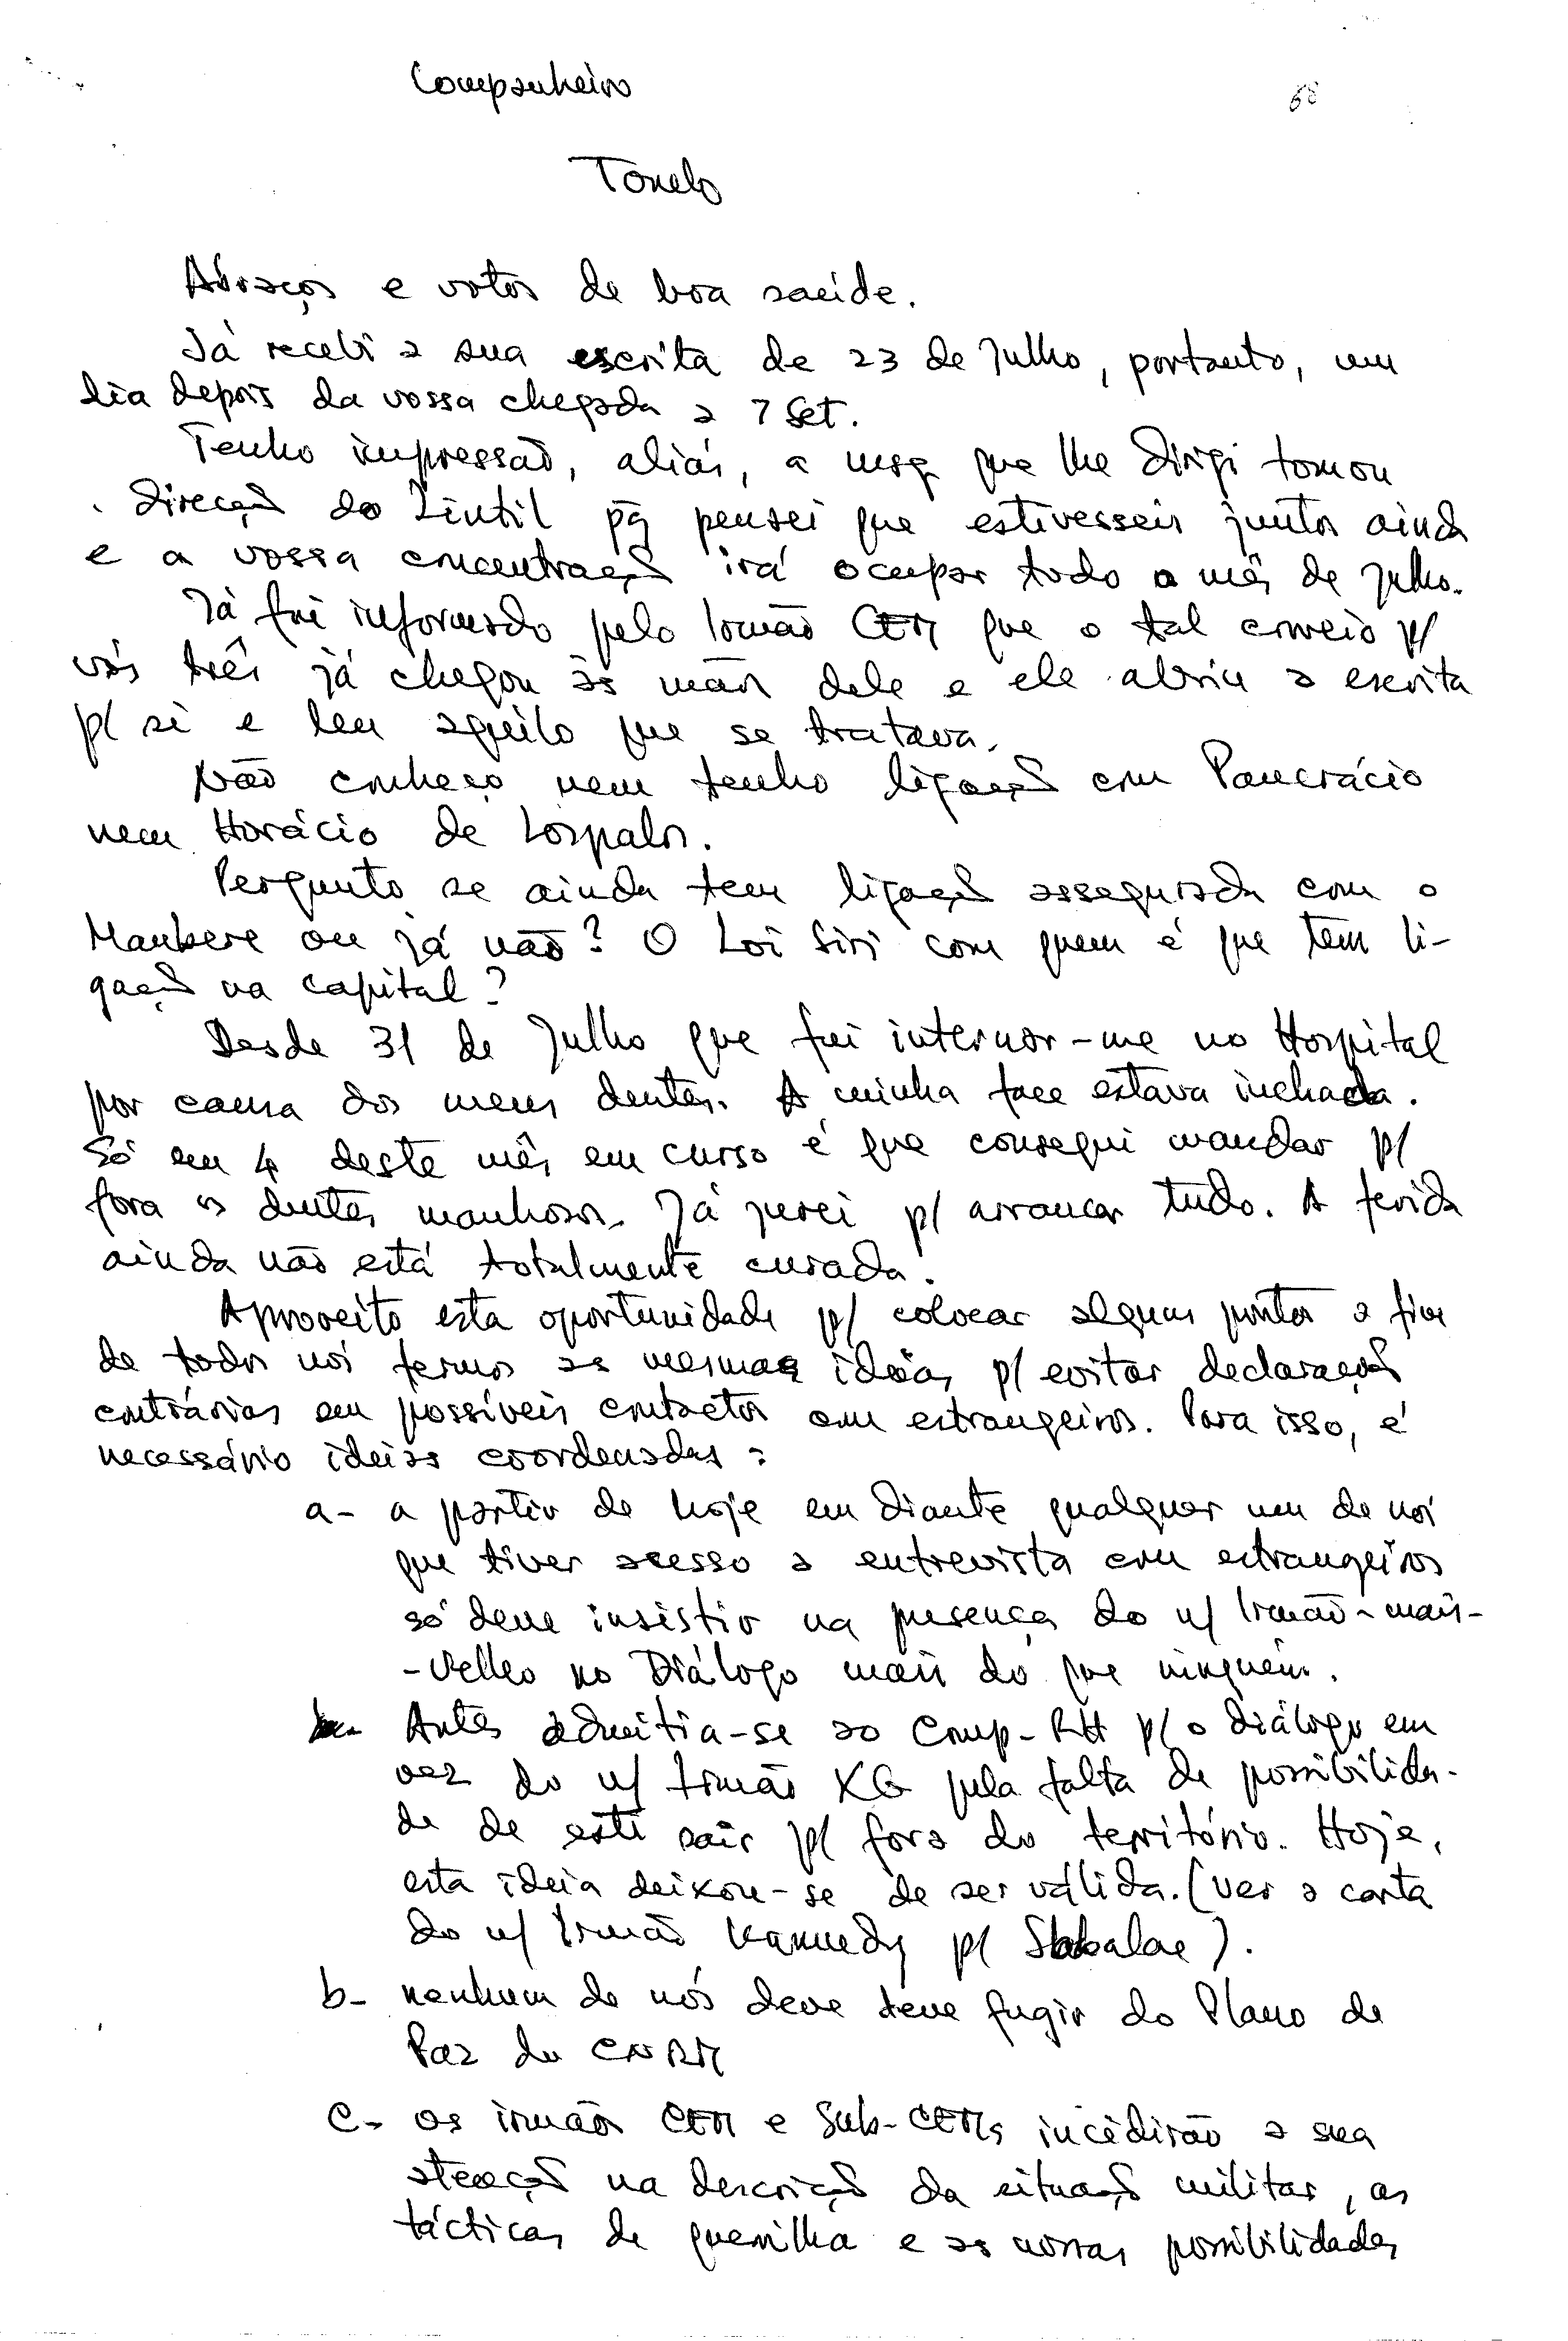 Companheiro
68
Tonelo
Abraços e votos de boa saúde.
Já recebi a sua escrita de 23 de Julho, portanto, um
dia depois da vossa chegada a 7 Set.
Tenho impressão, aliás, a msg que lhe dirigi tomou
direcção do Lintil pq pensei que estivesseis juntos ainda
e a vossa concentração irá ocupar todo o mês de Julho.
Já fui informado pelo Irmão CEM que o tal correio p/
vós três já chegou às mãos dele e ele abriu a escrita
p/ si e leu aquilo que se tratava.
Não conheço nem tenho ligação com Pancrácio
nem Horácio de Lospalos.
Pergunto se ainda tem ligação assegurada com o
Maubere ou já não? O Loi Siri com quem é que tem li-
gação na capital?
Desde 31 de Julho que fui internar-me no Hospital
por causa dos meus dentes. A minha face estava inchada.
Só em 4 deste mês em curso é que consegui mandar p/
fora os dentes manhosos. Já jurei p/ arrancar tudo. A ferida
ainda não está totalmente curada.
Aproveito esta oportunidade p/ colocar alguns pontos a fim
de todos nós termos as mesmas ideias p/ evitar declarações
contrárias em possíveis contactos com estrangeiros. Para isso, é
necessário ideias coordenadas:
a- a partir de hoje em diante qualquer um de nós
que tiver acesso a entrevista com estrangeiros
só deve insistir na presença do n/ Irmão-mais-
-Velho no Diálogo mais do que ninguém.
Antes admitia-se ao Comp-RH p/ o diálogo em
vez do n/ Irmão XG pela falta de possibilida-
de de este sair p/ fora do território. Hoje,
esta ideia deixou-se de ser válida. (ver a carta
do n/ Irmão Kannedy p/ Sabalae).
b- nenhum de nós deve deve fugir do Plano de
Paz do CNRM
c- os irmãos CEM e Sub-CEMs incedirão a sua
atenção na descrição da situação militar, as
tácticas de guerrilha e as nossas possibilidades